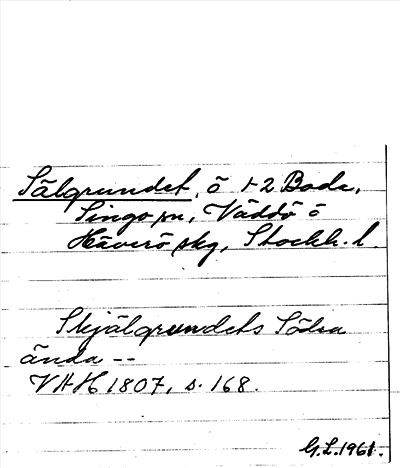 Sälgrundet, ö t 2 Boda,
Singö sn, Väddö o
Häverö skg, Stockh. l.
Skjälgrundets Södra
ända --
VHH 1807, s. 168.
G.L. 1961.